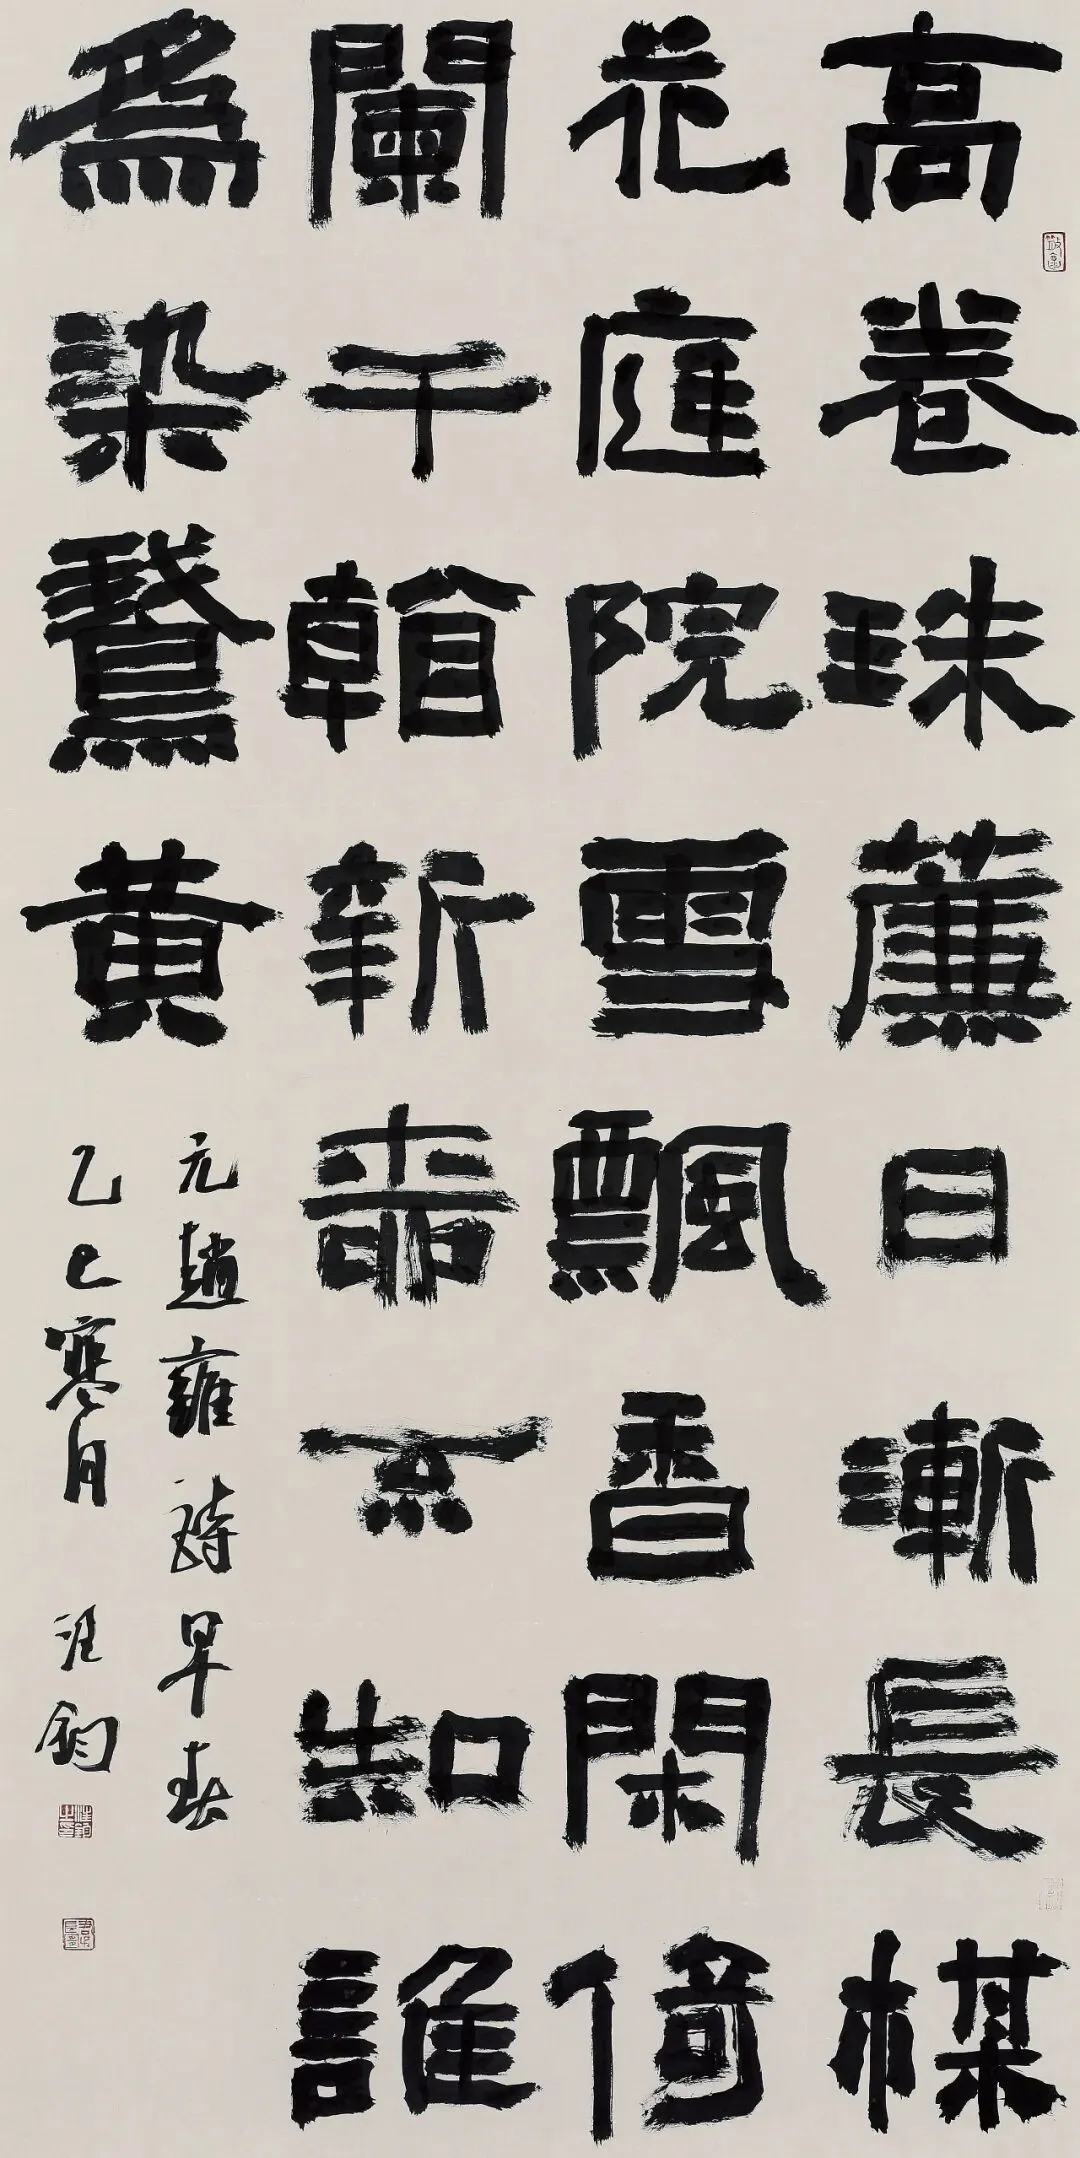 高卷珠簾日漸長楳
花庭院雪飄香閑倚
闌干看新柳不知誰
爲染鵞黃
元趙雍詩早春
乙巳寒月 汪鈞